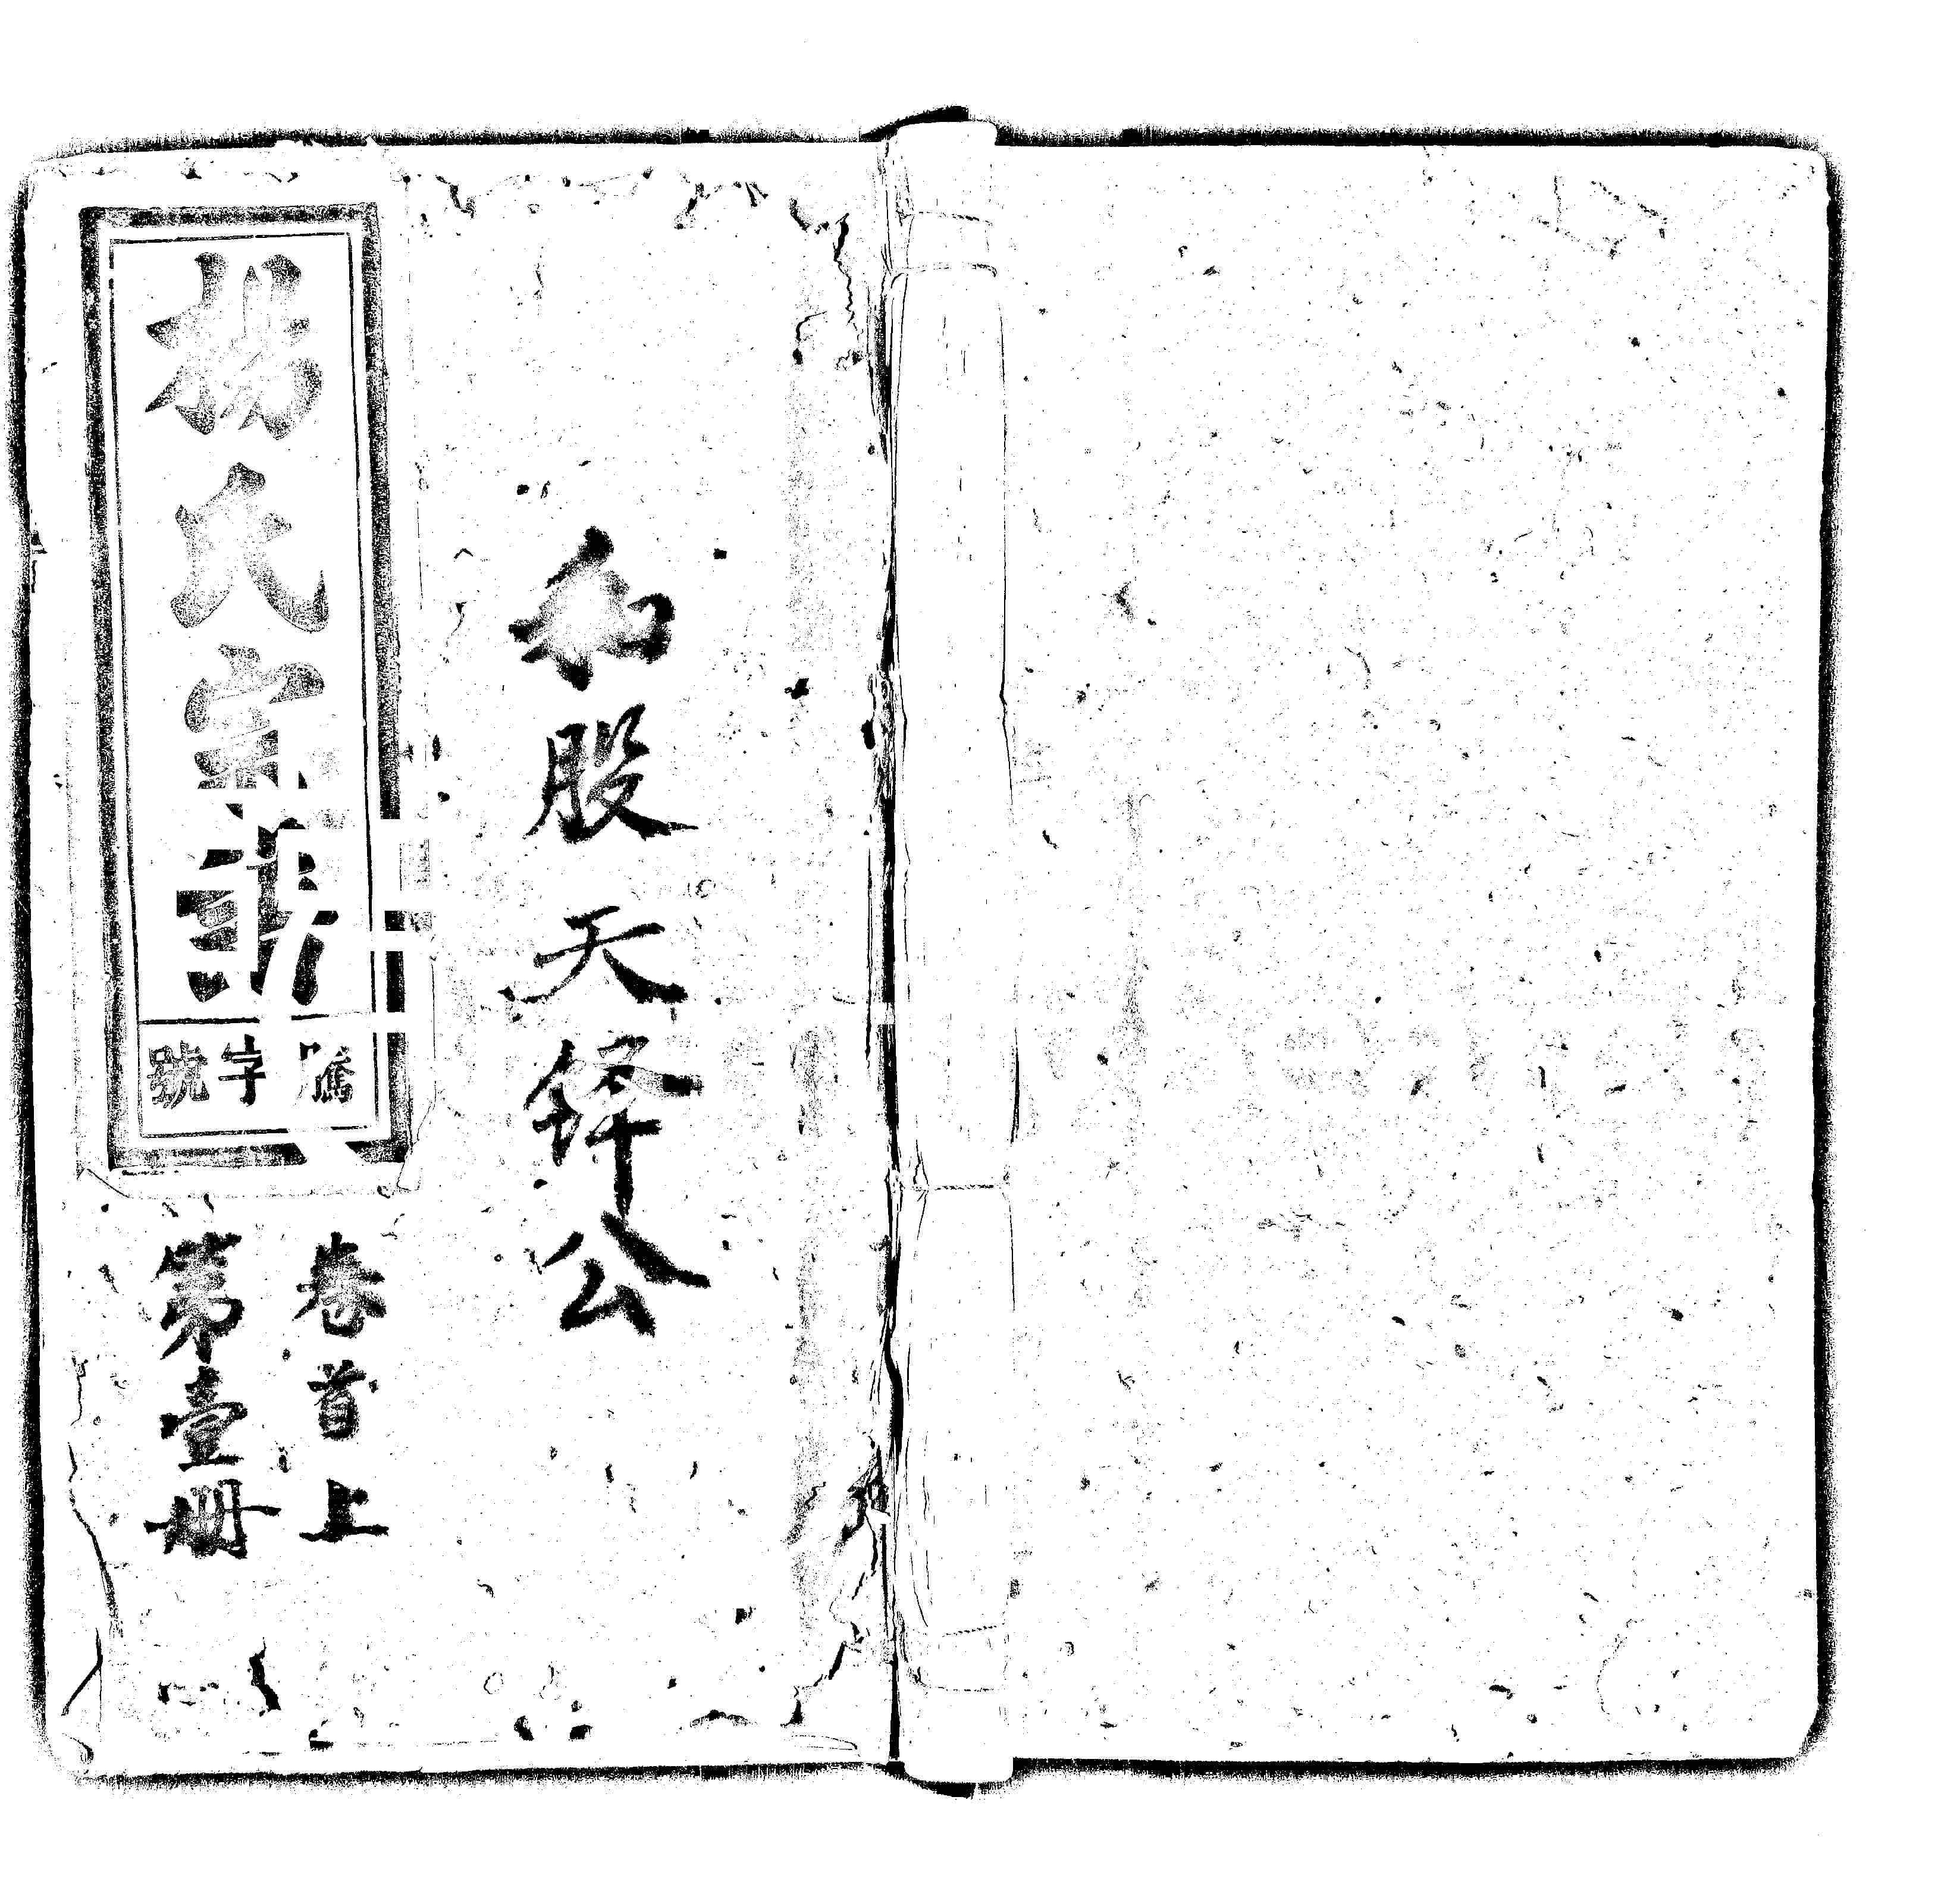 和股天铎公
楊氏宗譜
騰字號
卷首上
第壹冊